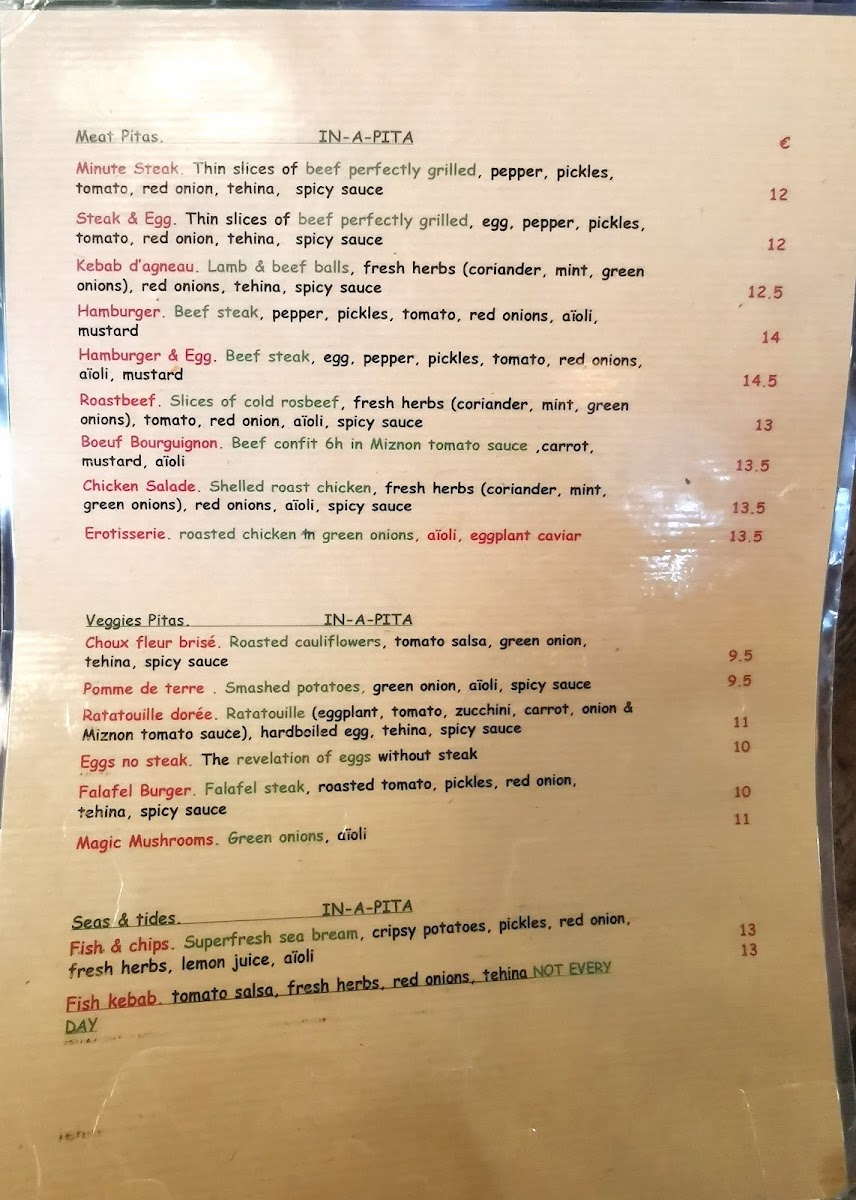 Meat Pitas. IN-A-PITA €
Minute Steak. Thin slices of beef perfectly grilled, pepper, pickles,
tomato, red onion, tehina, spicy sauce 12
Steak & Egg. Thin slices of beef perfectly grilled, egg, pepper, pickles,
tomato, red onion, tehina, spicy sauce 12
Kebab d'agneau. Lamb & beef balls, fresh herbs (coriander, mint, green
onions), red onions, tehina, spicy sauce 12.5
Hamburger. Beef steak, pepper, pickles, tomato, red onions, aïoli,
mustard 14
Hamburger & Egg. Beef steak, egg, pepper, pickles, tomato, red onions,
aïoli, mustard 14.5
Roastbeef. Slices of cold rosbeef, fresh herbs (coriander, mint, green
onions), tomato, red onion, aïoli, spicy sauce 13
Boeuf Bourguignon. Beef confit 6h in Miznon tomato sauce ,carrot,
mustard, aïoli 13.5
Chicken Salade. Shelled roast chicken, fresh herbs (coriander, mint,
green onions), red onions, aïoli, spicy sauce 13.5
Erotisserie. roasted chicken in green onions, aïoli, eggplant caviar 13.5
Veggies Pitas. IN-A-PITA
Choux fleur brisé. Roasted cauliflowers, tomato salsa, green onion,
tehina, spicy sauce 9.5
Pomme de terre . Smashed potatoes, green onion, aïoli, spicy sauce 9.5
Ratatouille dorée. Ratatouille (eggplant, tomato, zucchini, carrot, onion &
Miznon tomato sauce), hardboiled egg, tehina, spicy sauce 11
Eggs no steak. The revelation of eggs without steak 10
Falafel Burger. Falafel steak, roasted tomato, pickles, red onion,
tehina, spicy sauce 10
Magic Mushrooms. Green onions, aïoli 11
Seas & tides. IN-A-PITA
Fish & chips. Superfresh sea bream, cripsy potatoes, pickles, red onion, 13
fresh herbs, lemon juice, aïoli 13
Fish kebab. tomato salsa, fresh herbs, red onions, tehina NOT EVERY
DAY